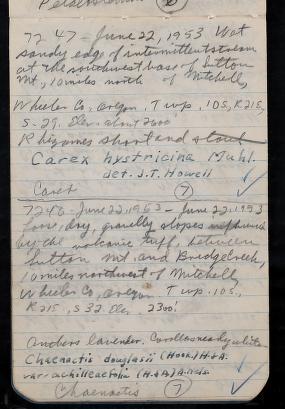 7247 - June 22, 1953 Wet
sandy edge of intermittent stream
at the southwest base of Sutton
Mt., 10 miles north of Mitchell,
Wheeler Co., Oregon, Twp. 10S, R21E,
S-29. Elev. about 2000'
Rhizomes short and stout
Carex hystricina Muhl.
det. J.T. Howell
Carex 7
7248 - June 22, 1953 - June 22, 1953
loose, dry, gravelly slopes
by the volcanic tuff, between
Sutton Mt. and Bridge Creek,
10 miles northwest of Mitchell,
Wheeler Co., Oregon Twp. 10S.,
R21E, S32. Elev. 2300'.
Anthers lavender. Corollas nearly white
Chaenactis douglasii (Hook.) H.&A.
var. achilleaefolia (H.&A.) A. Nels
Chaenactis 7